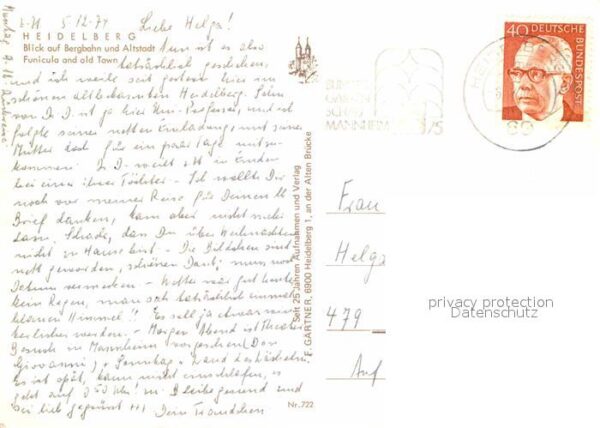 Montag
z-H 5.12.74
Liebe Helga!
HEIDELBERG
Blick auf Bergbahn und Altstadt
Funicula and old Town
Nun ist es also
tatsächlich geschehen,
und ich weile seit gestern hier im
schönen altbekannten Heidelberg. Sohn
von D. D. ist ja hier Uni-Professor, und ich
folgte seiner netten Einladung, mit seiner
Mutter doch für ein paar Tage mitzu-
kommen. D. D. weilt oft in
bei einer ihrer Töchter - Ich wollte Dir
noch vor meiner Reise für Deinen lb
Brief danken, kam aber nicht mehr
Schade, dass Du über Weihnachten
nicht zu Hause bist. - Die Bildchen sind
nett geworden, schönen Dank! muss noch
Datum vermerken - Wetter war gut
kein Regen, man sah tatsächlich einmal
blauen Himmel! Es soll ja etwas
werden. - Morgen Abend ist Theater
Besuch in Mannheim vorgesehen (Don
Giovanni),
Es ist spät, kann nicht einschlafen, es
geht auf Uhr! Bleibe gesund und
sei lieb gegrüsst Dein Traudchen
Nr. 722
Seit 25 Jahren Aufnahmen und Verlag
E. GÄRTNER, 6900 Heidelberg 1, an der Alten Brücke
BUNDES
GARTEN
SCHAU
MANNHEIM 75
HEIDELBERG
40 DEUTSCHE
BUNDESPOST
Frau
Helga
479
Auf
privacy protection
Datenschutz